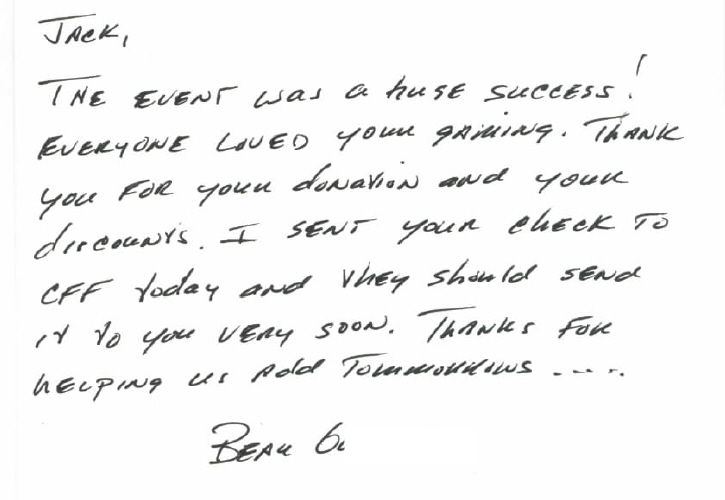 Jack,
The event was a huge success!
Everyone loved your gaming. Thank
you for your donation and your
discounts. I sent your check to
CFF today and they should send
it to you very soon. Thanks for
helping us add Tommorrows .....